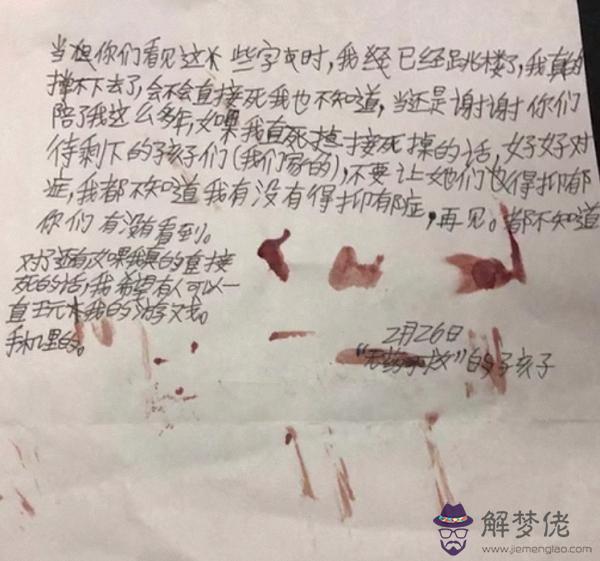 当你们看见这些字时，我经已经跳楼了，我真的
撑不下去了，会不会直接死我也不知道，当还是谢谢你们
陪了我这么多年，如果我直接死掉的话，好好对
待剩下的孩子们（我们家的），不要让她们也得抑郁
症，我都不知道我有没有得抑郁症，再见。都不知道
你们有没有看到。
对了还有如果我真的直接
死的话，我希望有人可以一
直玩我的游戏。
手机里的。
2月26日
的孩子
解梦佬
www.jiemenglao.com